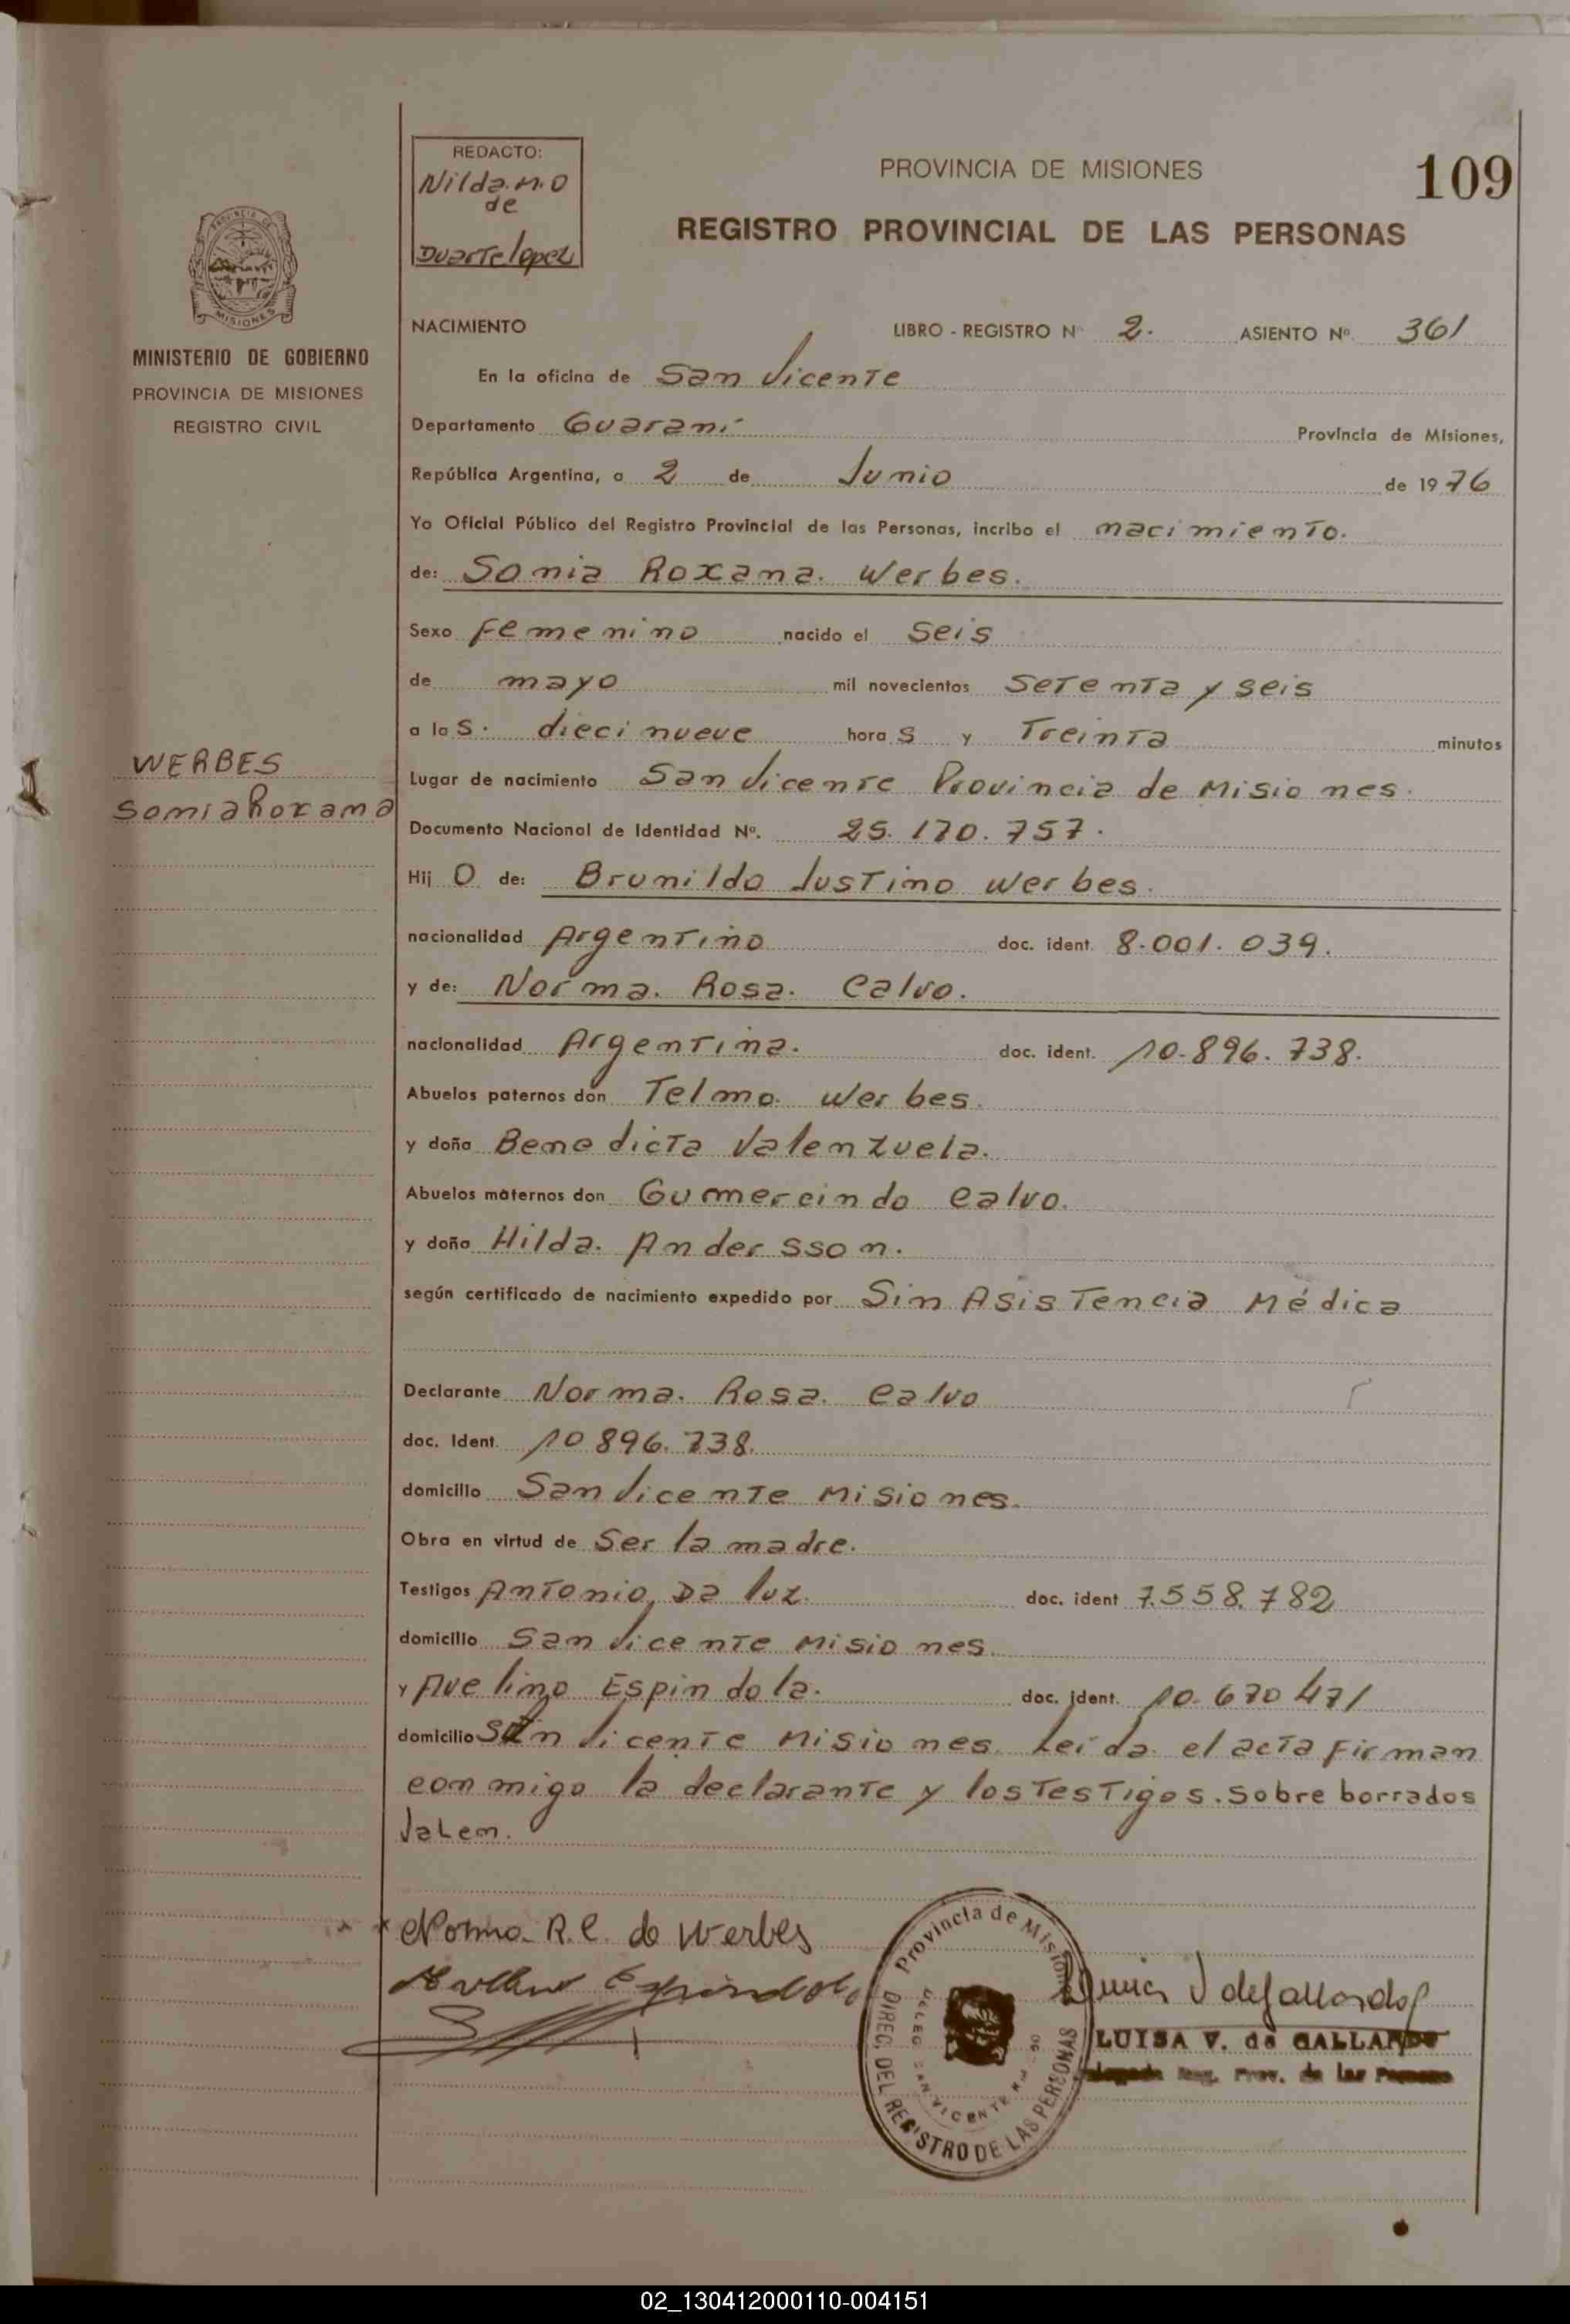 REDACTO:
Nilda.M.O
de
Duarte lopez
PROVINCIA DE MISIONES
109
REGISTRO PROVINCIAL DE LAS PERSONAS
PROVINCIA DE
MISIONES
MINISTERIO DE GOBIERNO
PROVINCIA DE MISIONES
REGISTRO CIVIL
NACIMIENTO LIBRO - REGISTRO Nº 2. ASIENTO Nº. 361
En la oficina de San Vicente
Departamento Guaraní Provincia de Misiones,
República Argentina, a 2 de Junio de 1976
Yo Oficial Público del Registro Provincial de las Personas, incribo el nacimiento.
de: Sonia Roxana. Werbes.
Sexo Femenino nacido el Seis
de mayo mil novecientos Setenta y seis
a las. diecinueve horas y Treinta minutos
WERBES
Sonia Roxana
Lugar de nacimiento San Vicente Provincia de Misiones.
Documento Nacional de Identidad Nº. 25.170.757.
Hijo de: Brunildo Justino Werbes.
nacionalidad Argentino doc. ident. 8.001.039.
y de: Norma. Rosa. Calvo.
nacionalidad Argentina. doc. ident. 10.896.738.
Abuelos paternos don Telmo. Werbes.
y doña Benedicta Valenzuela.
Abuelos maternos don Gumercindo Calvo.
y doña Hilda. Andersson.
según certificado de nacimiento expedido por Sin Asistencia Médica
Declarante Norma. Rosa. Calvo
doc. Ident. 10 896.738.
domicilio San Vicente Misiones.
Obra en virtud de Ser la madre.
Testigos Antonio, Da luz. doc. ident 7.558.782
domicilio San Vicente Misiones.
y Avelino Espindola. doc. ident. 10.670 471
domicilio San Vicente Misiones. Leída el acta Firman
conmigo la declarante y los Testigos. Sobre borrados
Valen.
Norma R.C. de Werbes
Espindola
Provincia de Misiones
DIREC. DEL REGISTRO DE LAS PERSONAS
DELEG. SAN VICENTE
Luisa V de Gallardo
LUISA V. de GALLARDO
Delegada Reg. Prov. de las Personas
02_130412000110-004151